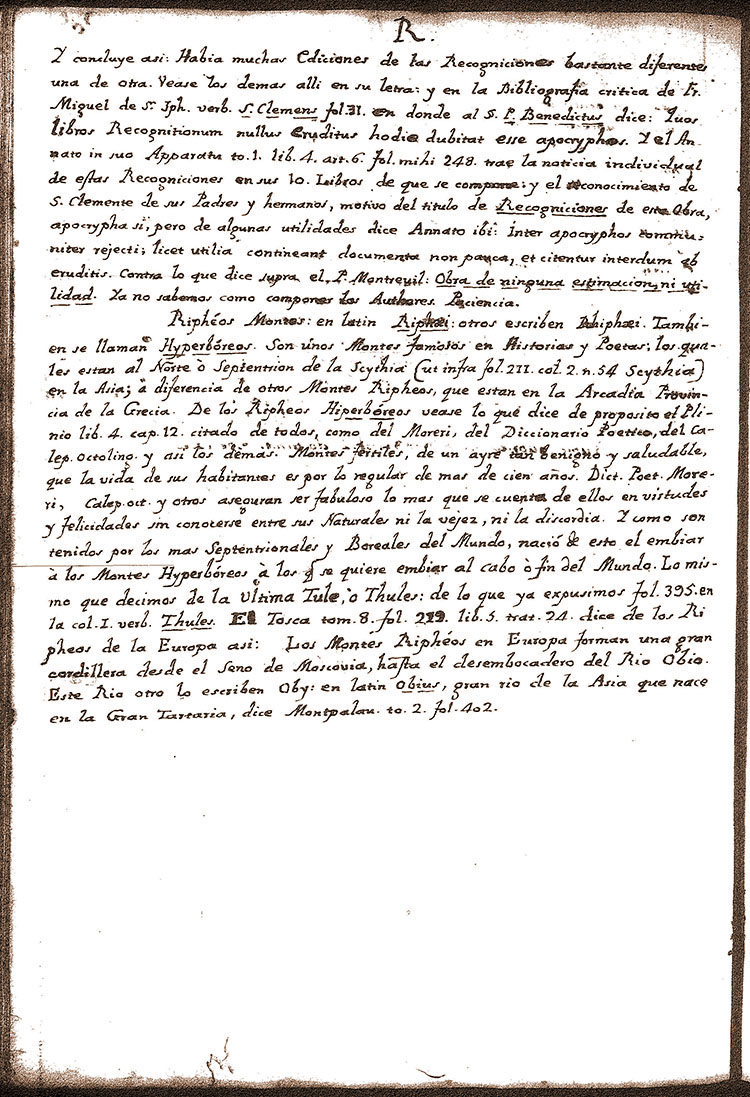 R.
Y concluye asi: Habia muchas Ediciones de las Recogniciones bastante diferentes
una de otra. Vease los demas alli en su letra: y en la Bibliografia critica de Fr.
Miguel de Sn. Jph. verb. S. Clemens fol. 31. en donde al S. P. Benedictus dice: Quos
libros Recognitionum nullus Eruditus hodie dubitat esse apocryphos. Y el An-
nato in suo Apparatu to. 1. lib. 4. art. 6. fol. mihi 248. trae la noticia individual
de estas Recogniciones en sus 10. Libros de que se compone: y el reconocimiento de
S. Clemente de sus Padres y hermanos, motivo del titulo de Recogniciones de esta Obra,
apocrypha si, pero de algunas utilidades dice Annato ibi: Inter apocryphos commu-
niter rejecti; licet utilia contineant documenta non pauca, et citentur interdum ab
eruditis. Contra lo que dice supra el P. Montreuil: Obra de ninguna estimacion, ni uti-
lidad. Ya no sabemos como componer los Authores. Paciencia.
Riphéos Montes: en latin Riphæi: otros escriben Rhiphæi. Tambi-
en se llaman Hyperbóreos. Son unos Montes famosos en Historias y Poetas; los qua-
les estan al Norte ò Septentrion de la Scythia (ut infra fol. 211. col. 2. n. 54 Scythia)
en la Asia; à diferencia de otros Montes Ripheos, que estan en la Arcadia Provin-
cia de la Grecia. De los Ripheos Hiperbóreos vease lo que dice de proposito el Pli-
nio lib. 4. cap. 12. citado de todos, como del Moreri, del Diccionario Poetico, del Ca-
lep. Octoling. y asi los demás. Montes fertiles, de un ayre benigno y saludable,
que la vida de sus habitantes es por lo regular de mas de cien años. Dict. Poet. More-
ri, Calep. oct. y otros aseguran ser fabuloso lo mas que se cuenta de ellos en virtudes
y felicidades sin conocerse entre sus Naturales ni la vejez, ni la discordia. Y como son
tenidos por los mas Septentrionales y Boreales del Mundo, nació de esto el embiar
à los Montes Hyperbóreos à los q̃ se quiere embiar al cabo ò fin del Mundo. Lo mis-
mo que decimos de la Ultima Tule, ò Thules: de lo que ya expusimos fol. 395. en
la col. 1. verb. Thules. El Tosca tom. 8. fol. 219. lib. 5. trat. 24. dice de los Ri
pheos de la Europa asi: Los Montes Riphéos en Europa forman una gran
cordillera desde el Seno de Moscovia, hasta el desembocadero del Rio Obio.
Este Rio otro lo escriben Oby: en latin Obius, gran rio de la Asia que nace
en la Gran Tartaria, dice Montpalau. to. 2. fol. 402.